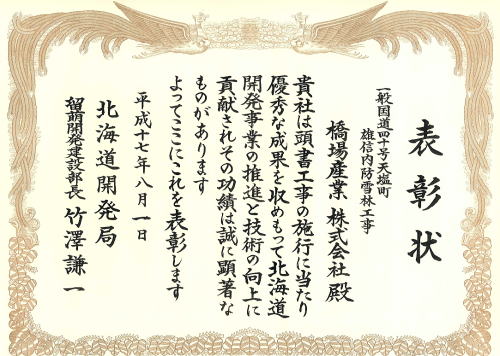 表彰状
一般国道四十号天塩町
雄信内防雪林工事
橋場産業株式会社殿
貴社は頭書工事の施行に当たり
優秀な成果を収めもって北海道
開発事業の推進と技術の向上に
貢献されその功績は誠に顕著な
ものがあります
よってここにこれを表彰します
平成十七年八月一日
北海道開発局
留萌開発建設部長 竹澤謙一